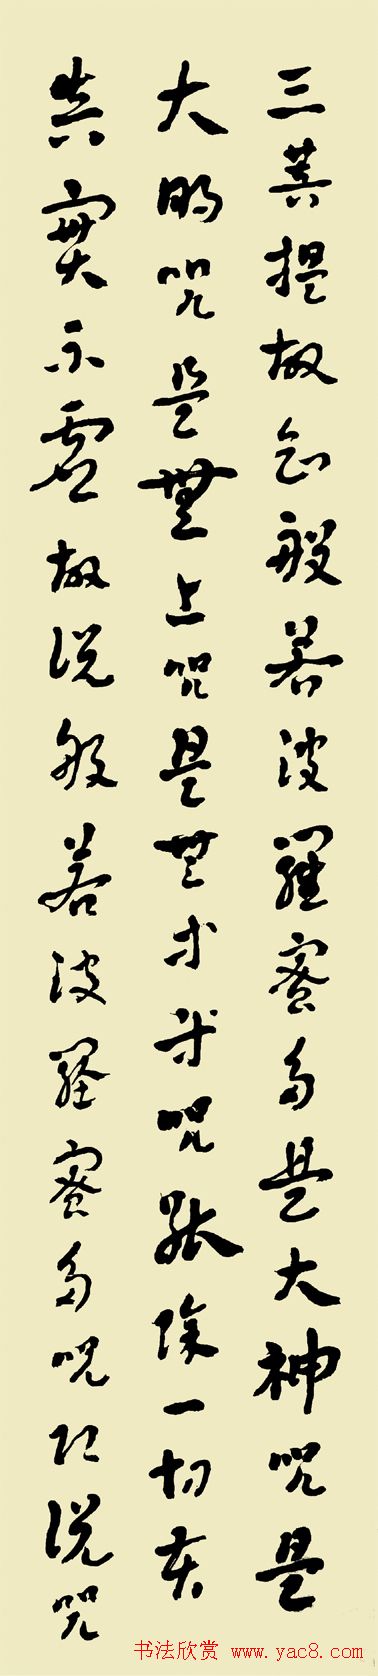 三菩提故知般若波羅蜜多是大神咒是
大明咒是無上咒是無等等咒能除一切苦
真實不虛故說般若波羅蜜多咒即說咒
书法欣赏 www.yac8.com